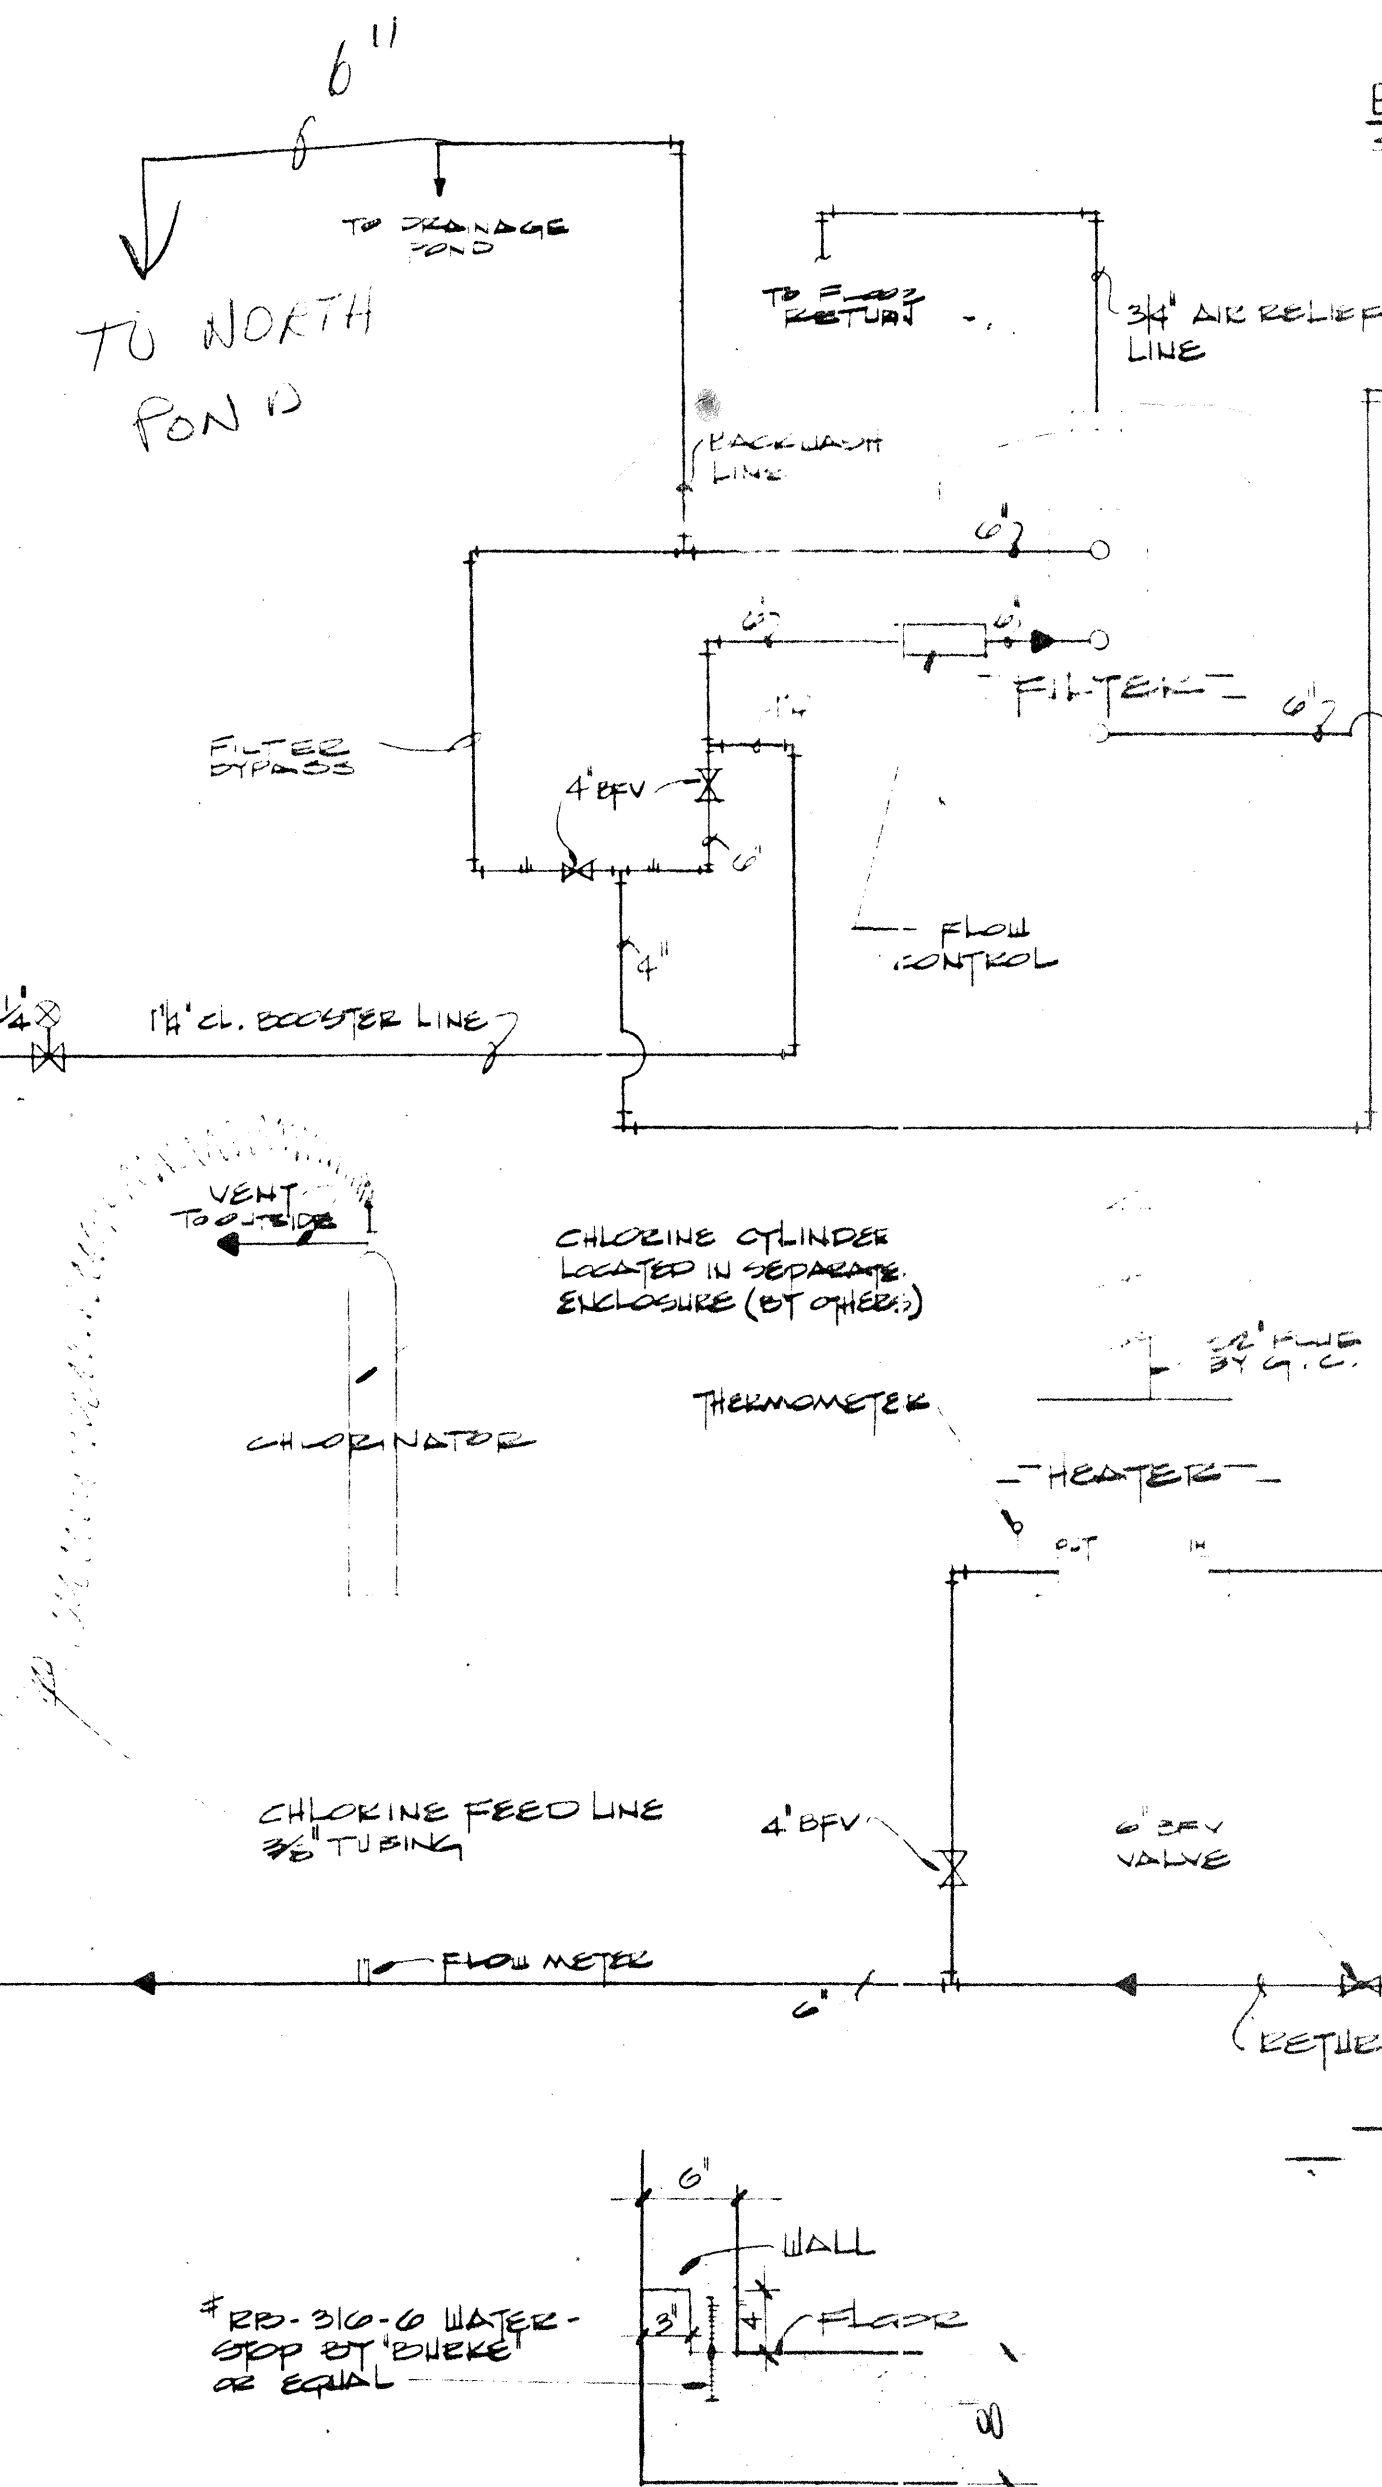 6"
TO DRAINAGE
POND
TO NORTH
POND
TO FLOOR
RETURN
3/4" AIR RELIEF
LINE
BACKWASH
LINE
6"
6"
6"
FILTER
6"
1¼"
FILTER
BYPASS
4" BFV
6"
FLOW
CONTROL
4"
1/4"
1¼" CL. BOOSTER LINE
VENT
TO OUTSIDE
CHLORINE CYLINDER
LOCATED IN SEPARATE
ENCLOSURE (BY OTHERS)
FLUE
BY G.C.
THERMOMETER
CHLORINATOR
HEATER
OUT
IN
CHLORINE FEED LINE
3/8" TUBING
4" BFV
6" BFV
VALVE
FLOW METER
6"
RETUR
6"
WALL
# RB-316-6 WATER-
STOP BY "BURKE"
OR EQUAL
3"
4"
FLOOR
8"